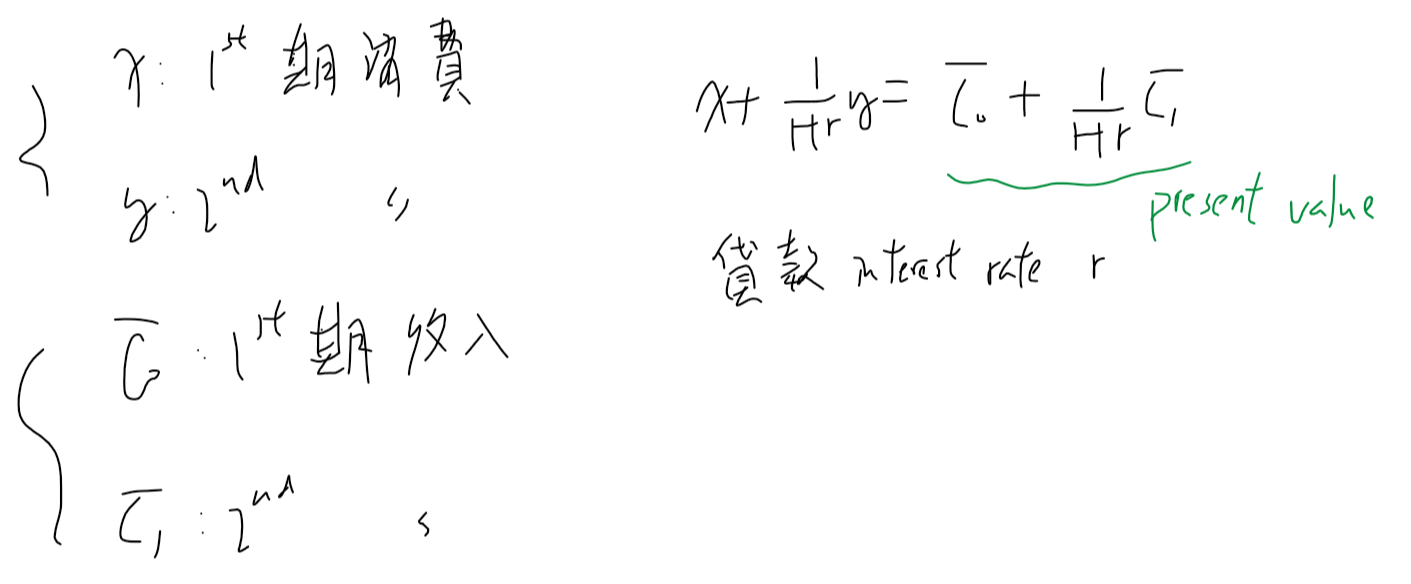 x: 1st 期消費
y: 2nd 〃
C̅₀: 1st 期收入
C̅₁: 2nd 〃
x + 1/(1+r) y = C̅₀ + 1/(1+r) C̅₁
present value
貸款 interest rate r